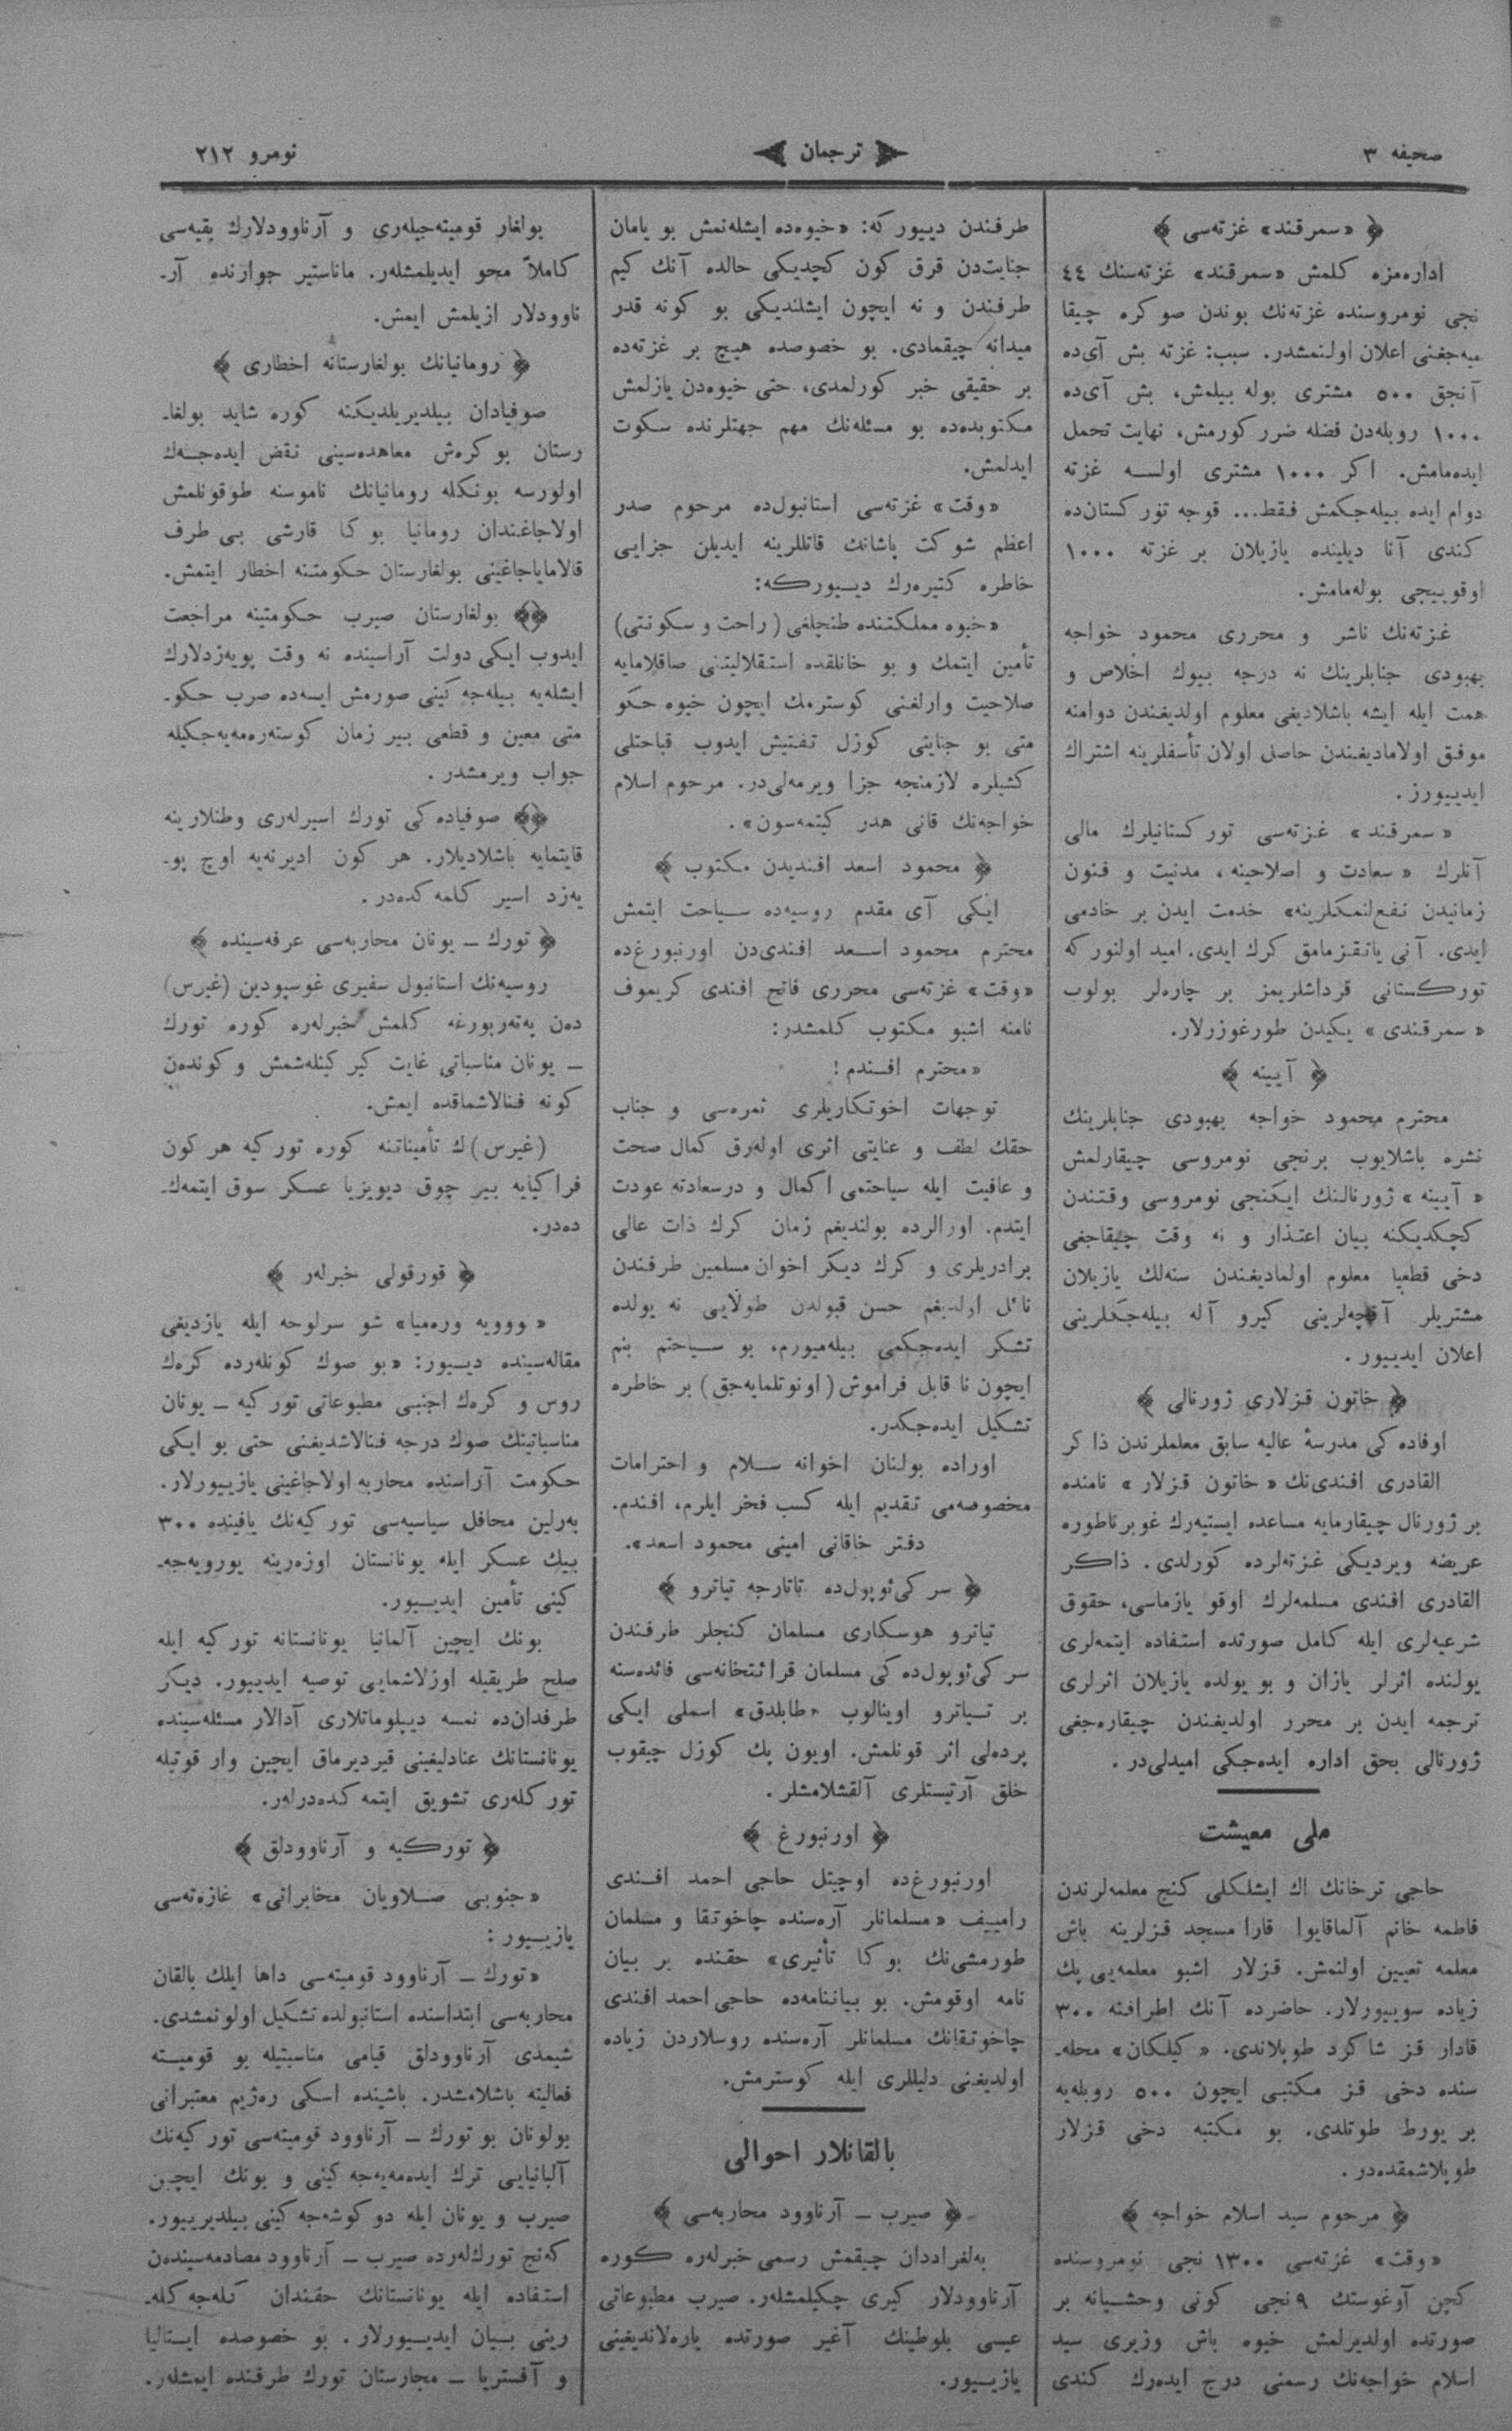 صحیفه ۳
ترجمان
نومرو ۲۱۲
﴿ «سمرقند» غزته‌سی ﴾
اداره‌مزه كلمش «سمرقند» غزته‌سنك ٤٤
نجی نومروسنده غزته‌نك بوندن صوكره چیقا
میه‌جغنی اعلان اولنمشدر. سبب: غزته بش آی‌ده
آنجق ٥٠٠ مشتری بوله بیلمش، بش آی‌ده
١٠٠٠ روبله‌دن فضله ضرر كورمش، نهایت تحمل
ایده‌مامش. اكر ١٠٠٠ مشتری اولسه غزته
دوام ایده بیله‌جكمش فقط... قوجه توركستان‌ده
كندی آنا دیلینده یازیلان بر غزته ١٠٠٠
اوقوییجی بوله‌مامش.
غزته‌نك ناشر و محرری محمود خواجه
بهبودی جنابلرینك نه درجه بیوك اخلاص و
همت ایله ایشه باشلادیغی معلوم اولدیغندن دوامنه
موفق اولامادیغندن حاصل اولان تأسفلرینه اشتراك
ایدییورز.
«سمرقند» غزته‌سی توركستانیلرك مالی
آنلرك «سعادت و اصلاحینه، مدنیت و فنون
زمانیدن نفع‌لنمكلرینه» خدمت ایدن بر خادمی
ایدی. آنی یاتقزمامق كرك ایدی. امید اولنور كه
توركستانی قرداشلریمز بر چاره‌لر بولوب
«سمرقندی» یكیدن طورغوزرلار.
﴿ آیینه ﴾
محترم محمود خواجه بهبودی جنابلرینك
نشره باشلایوب برنجی نومروسی چیقارلمش
«آیینه» ژورنالنك ایكنجی نومروسی وقتندن
كچكدیكنه بیان اعتذار و نه وقت چیقاجغی
دخی قطعیا معلوم اولمادیغندن سنه‌لك یازیلان
مشتریلر آقچه‌لرینی كیرو آله بیله‌جكلرینی
اعلان ایدییور.
﴿ خاتون قزلاری ژورنالی ﴾
اوفاده كی مدرسۀ عالیه سابق معلملرندن ذاكر
القادری افندی‌نك «خاتون قزلار» نامنده
بر ژورنال چیقارمایه مساعده ایستیه‌رك غوبرناطوره
عریضه ویردیكی غزته‌لرده كورلدی. ذاكر
القادری افندی مسلمه‌لرك اوقو یازماسی، حقوق
شرعیه‌لری ایله كامل صورتده استفاده ایتمه‌لری
یولنده اثرلر یازان و بو یولده یازیلان اثرلری
ترجمه ایدن بر محرر اولدیغندن چیقاره‌جغی
ژورنالی بحق اداره ایده‌جكی امیدلی‌در.
ملی معیشت
حاجی ترخانك اك ایشلكلی كنج معلمه‌لرندن
فاطمه خانم آلماقایوا قارا مسجد قزلرینه باش
معلمه تعیین اولنمش. قزلار اشبو معلمه‌یی پك
زیاده سوییورلار. حاضرده آنك اطرافنه ٣٠٠
قادار قز شاكرد طوپلاندی. «كیلكان» محله‌ـ
سنده دخی قز مكتبی ایچون ٥٠٠ روبله‌یه
بر یورط طوتلدی. بو مكتبه دخی قزلار
طوپلاشمقده‌در.
﴿ مرحوم سید اسلام خواجه ﴾
«وقت» غزته‌سی ١٣٠٠ نجی نومروسنده
كچن آوغوستك ٩ نجی كونی وحشیانه بر
صورتده اولدیرلمش خیوه باش وزیری سید
اسلام خواجه‌نك رسمنی درج ایده‌رك كندی
طرفندن دییور كه: «خیوه‌ده ایشله‌نمش بو یامان
جنایت‌دن قرق كون كچدیكی حالده آنك كیم
طرفندن و نه ایچون ایشلندیكی بو كونه قدر
میدانه چیقمادی. بو خصوصده هیچ بر غزته‌ده
بر حقیقی خبر كورلمدی، حتی خیوه‌دن یازلمش
مكتوبده‌ده بو مسئله‌نك مهم جهتلرنده سكوت
ایدلمش.
«وقت» غزته‌سی استانبول‌ده مرحوم صدر
اعظم شوكت پاشانك قاتللرینه ایدیلن جزایی
خاطره كتیره‌رك دییوركه:
«خیوه مملكتنده طنچلغی (راحت و سكونتی)
تأمین ایتمك و بو خانلقده استقلالیتنی صاقلامایه
صلاحیت وارلغنی كوسترمك ایچون خیوه حكو
متی بو جنایتی كوزل تفتیش ایدوب قباحتلی
كشیلره لازمنجه جزا ویرمه‌لی‌در. مرحوم اسلام
خواجه‌نك قانی هدر كیتمه‌سون».
﴿ محمود اسعد افندیدن مكتوب ﴾
ایكی آی مقدم روسیه‌ده سیاحت ایتمش
محترم محمود اسعد افندی‌دن اورنبورغ‌ده
«وقت» غزته‌سی محرری فاتح افندی كریموف
نامنه اشبو مكتوب كلمشدر:
«محترم افندم!
توجهات اخوتكاریلری ثمره‌سی و جناب
حقك لطف و عنایتی اثری اوله‌رق كمال صحت
و عافیت ایله سیاحتمی اكمال و درسعادته عودت
ایتدم. اورالرده بولندیغم زمان كرك ذات عالی
برادریلری و كرك دیكر اخوان مسلمین طرفندن
نائل اولدیغم حسن قبولدن طولایی نه یولده
تشكر ایده‌جكمی بیله‌میورم، بو سیاحتم بنم
ایچون نا قابل فراموش (اونوتلمایه‌جق) بر خاطره
تشكیل ایده‌جكدر.
اوراده بولنان اخوانه سلام و احترامات
مخصوصه‌می تقدیم ایله كسب فخر ایلرم، افندم.
دفتر خاقانی امینی محمود اسعد».
﴿ سركی‌ئوپول‌ده تاتارجه تیاترو ﴾
تیاترو هوسكاری مسلمان كنجلر طرفندن
سركی‌ئوپول‌ده كی مسلمان قرائتخانه‌سی فائده‌سنه
بر تیاترو اوینالوب «طابلدق» اسملی ایكی
پرده‌لی اثر قونلمش. اویون پك كوزل چیقوب
خلق آرتیستلری آلقشلامشلر.
﴿ اورنبورغ ﴾
اورنبورغ‌ده اوچیتل حاجی احمد افندی
رامییف «مسلمانلر آره‌سنده چاخوتقا و مسلمان
طورمشی‌نك بوكا تأثیری» حقنده بر بیان
نامه اوقومش. بو بیاننامه‌ده حاجی احمد افندی
چاخوتقانك مسلمانلر آره‌سنده روسلاردن زیاده
اولدیغنی دلیللری ایله كوسترمش.
بالقانلار احوالی
﴿ صیرب ـ آرناوود محاربه‌سی ﴾
به‌لغراددان چیقمش رسمی خبرلره كوره
آرناوودلار كیری چكیلمشلر. صیرب مطبوعاتی
عیسی بلوطینك آغیر صورتده یاره‌لاندیغینی
یازییور.
بولغار قومیته‌جیله‌ری و آرناوودلارك بقیه‌سی
كاملاً محو ایدیلمشلر. ماناستیر جوارنده آر‌ـ
ناوودلار ازیلمش ایمش.
﴿ رومانیانك بولغارستانه اخطاری ﴾
صوفیادان بیلدیریلدیكنه كوره شاید بولغا‌ـ
رستان بوكره‌ش معاهده‌سینی نقض ایده‌جه‌ك
اولورسه بونكله رومانیانك ناموسنه طوقونلمش
اولاجاغندان رومانیا بوكا قارشی بی طرف
قالامایاجاغینی بولغارستان حكومتنه اخطار ایتمش.
﴿﴾ بولغارستان صیرب حكومتینه مراجعت
ایدوب ایكی دولت آراسینده نه وقت پویه‌زدلارك
ایشله‌یه بیله‌جه‌كینی صورمش ایسه‌ده صرب حكو‌ـ
متی معین و قطعی بیر زمان كوسته‌ره‌مه‌یه‌جكیله
جواب ویرمشدر.
﴿﴾ صوفیاده كی تورك اسیرله‌ری وطنلارینه
قایتمایه باشلادیلار. هر كون ادیرنه‌یه اوچ پو‌ـ
یه‌زد اسیر كلمه‌كده‌در.
﴿ تورك ـ یونان محاربه‌سی عرفه‌سینده ﴾
روسیه‌نك استانبول سفیری غوسپودین (غیرس)
ده‌ن په‌ته‌ربورغه كلمش خبرله‌ره كوره تورك
ـ یونان مناسباتی غایت كیركینله‌شمش و كونده‌ن
كونه فنالاشماقده ایمش.
(غیرس)ك تأمیناتنه كوره توركیه هر كون
فراكیایه بیر چوق دیویزیا عسكر سوق ایتمه‌ك‌ـ
ده‌در.
﴿ قورقولی خبرله‌ر ﴾
«نوویه وره‌میا» شو سرلوحه ایله یازدیغی
مقاله‌سینده دییور: «بو صوك كونله‌رده كره‌ك
روس و كره‌ك اجنبی مطبوعاتی توركیه ـ یونان
مناسباتینك صوك درجه فنالاشدیغنی حتی بو ایكی
حكومت آراسنده محاربه اولاجاغینی یازییورلار.
به‌رلین محافل سیاسیه‌سی توركیه‌نك یاقینده ٣٠٠
بیك عسكر ایله یونانستان اوزه‌رینه یورویه‌جه‌ـ
كینی تأمین ایدییور.
بونك ایچین آلمانیا یونانستانه توركیه ایله
صلح طریقیله اوزلاشمایی توصیه ایدییور. دیكر
طرفدان‌ده نمسه دیپلوماتلاری آدالار مسئله‌سینده
یونانستانك عنادلیغینی قیردیرماق ایچین وار قوتیله
توركله‌ری تشویق ایتمه‌كده‌درله‌ر.
﴿ توركیه و آرناوودلق ﴾
«جنوبی صلاویان مخابراتی» غازه‌ته‌سی
یازییور:
«تورك ـ آرناوود قومیته‌سی داها ایلك بالقان
محاربه‌سی ابتداسنده استانبولده تشكیل اولونمشدی.
شیمدی آرناوودلق قیامی مناسبتیله بو قومیته
فعالیته باشلامشدر. باشینده اسكی ره‌ژیم معتبرانی
بولونان بو تورك ـ آرناوود قومیته‌سی توركیه‌نك
آلبانیایی ترك ایده‌مه‌یه‌جه‌كینی و بونك ایچین
صیرب و یونان ایله دوكوشه‌جه‌كینی بیلدیرییور.
كه‌نج تورك‌له‌رده صیرب ـ آرناوود مصادمه‌سینده‌ن
استفاده ایله یونانستانك حقندان كله‌جه‌كله‌ـ
رینی بیان ایدییورلار. بو خصوصده ایتالیا
و آفستریا ـ مجارستان تورك طرفنده ایمشله‌ر.